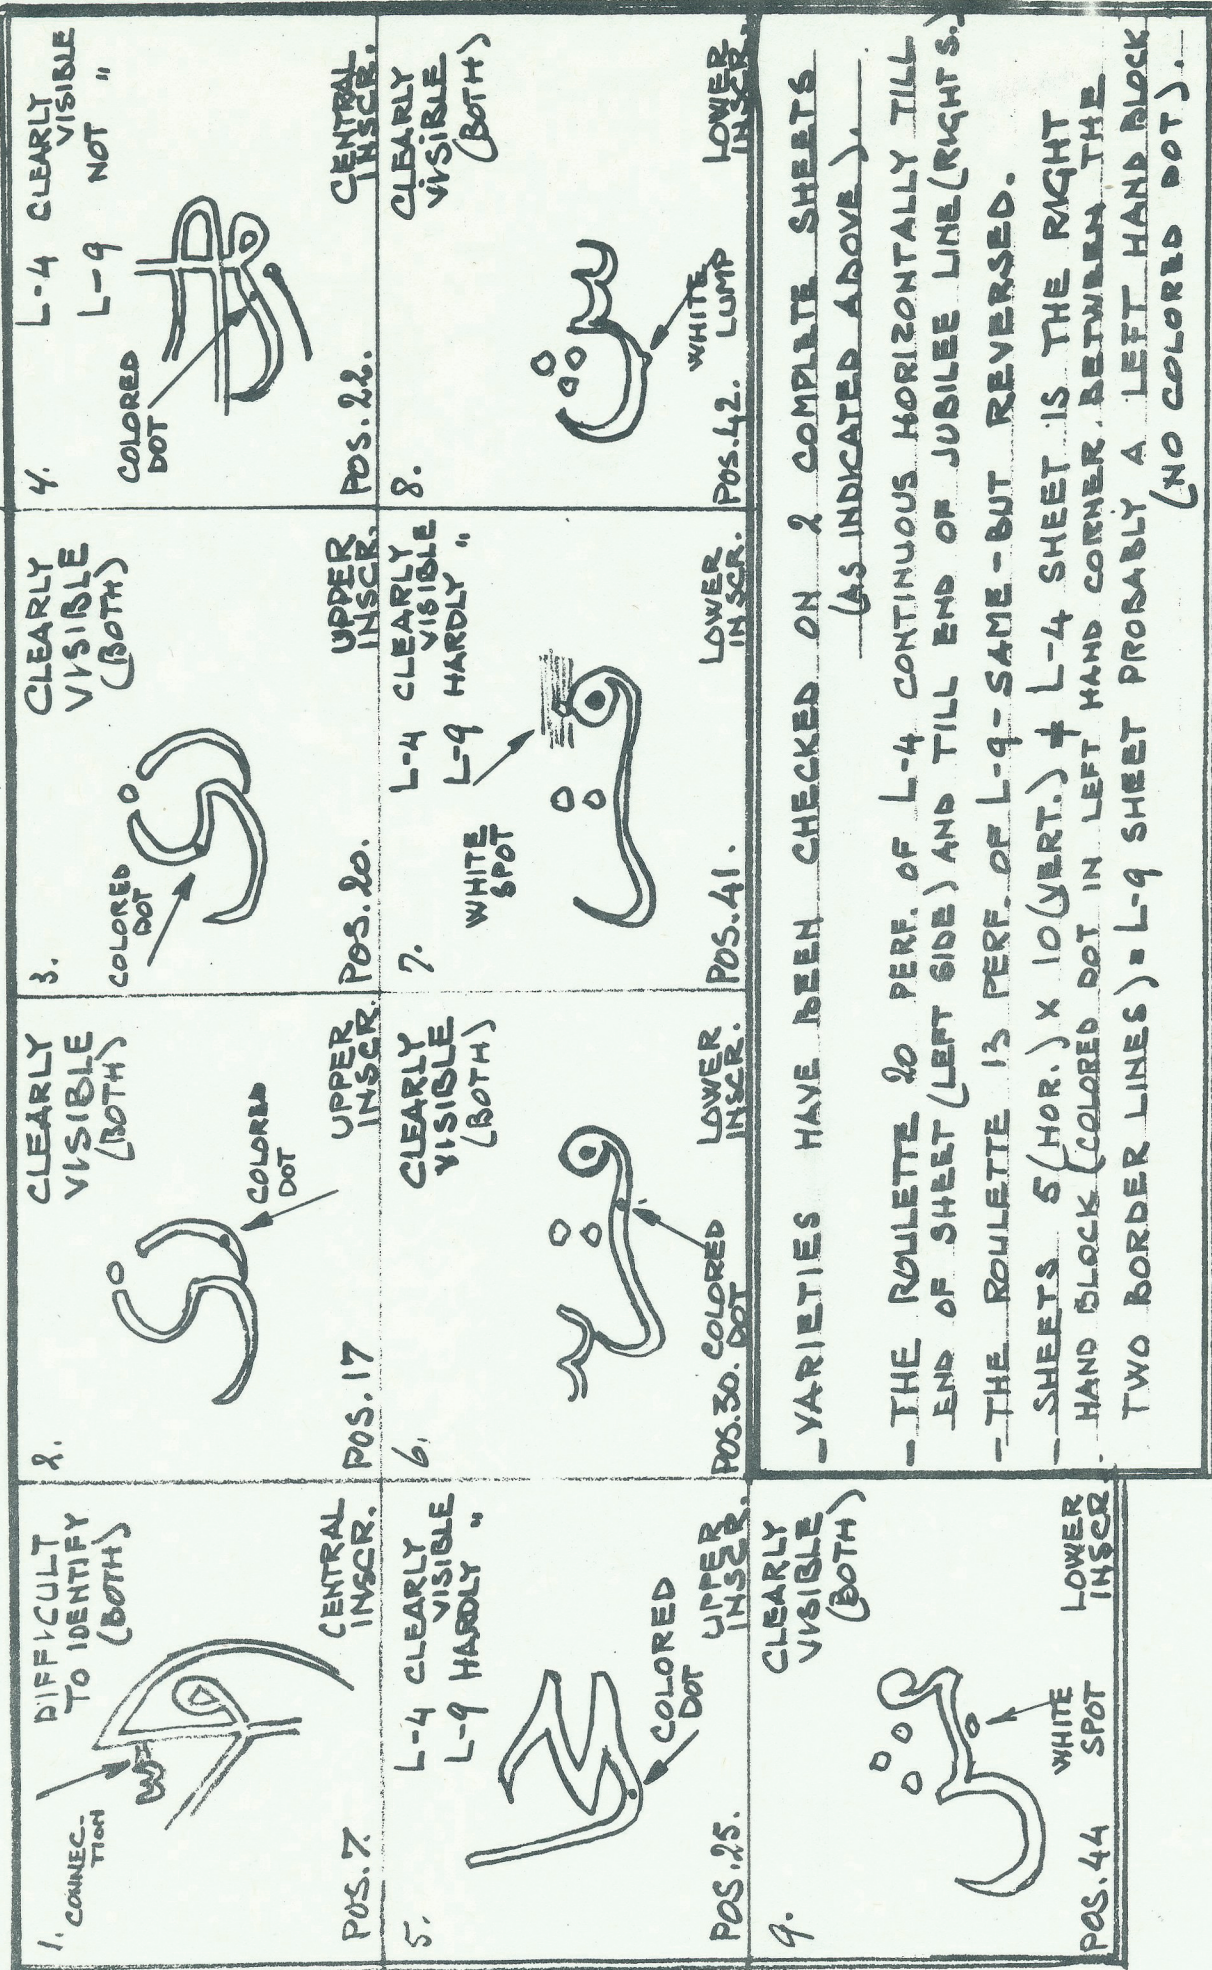 1.
CONNEC-
TION
DIFFICULT
TO IDENTIFY
(BOTH)
POS.7.
CENTRAL
INSCR.
2.
CLEARLY
VISIBLE
(BOTH)
COLORED
DOT
POS.17
UPPER
INSCR.
3.
COLORED
DOT
CLEARLY
VISIBLE
(BOTH)
POS.20.
UPPER
INSCR.
4.
COLORED
DOT
L-4 CLEARLY
VISIBLE
L-9 NOT "
POS.22.
CENTRAL
INSCR.
5.
L-4 CLEARLY
VISIBLE
L-9 HARDLY "
COLORED
DOT
POS.25.
UPPER
INSCR.
6.
CLEARLY
VISIBLE
(BOTH)
COLORED
DOT
POS.30.
LOWER
INSCR.
7.
WHITE
SPOT
L-4 CLEARLY
VISIBLE
L-9 HARDLY "
POS.41.
LOWER
INSCR.
8.
CLEARLY
VISIBLE
(BOTH)
WHITE
LUMP
POS.42.
LOWER
INSCR.
9.
CLEARLY
VISIBLE
(BOTH)
WHITE
SPOT
POS.44
LOWER
INSCR.
- VARIETIES HAVE BEEN CHECKED ON 2 COMPLETE SHEETS
(AS INDICATED ABOVE).
- THE ROULETTE 20 PERF. OF L-4 CONTINUOUS HORIZONTALLY TILL
END OF SHEET (LEFT SIDE) AND TILL END OF JUBILEE LINE (RIGHT S.)
- THE ROULETTE 13 PERF. OF L-9 - SAME - BUT REVERSED.
- SHEETS 5 (HOR.) X 10 (VERT.) ≠ L-4 SHEET IS THE RIGHT
HAND BLOCK (COLORED DOT IN LEFT HAND CORNER. BETWEEN THE
TWO BORDER LINES) = L-9 SHEET PROBABLY A LEFT HAND BLOCK
(NO COLORED DOT).